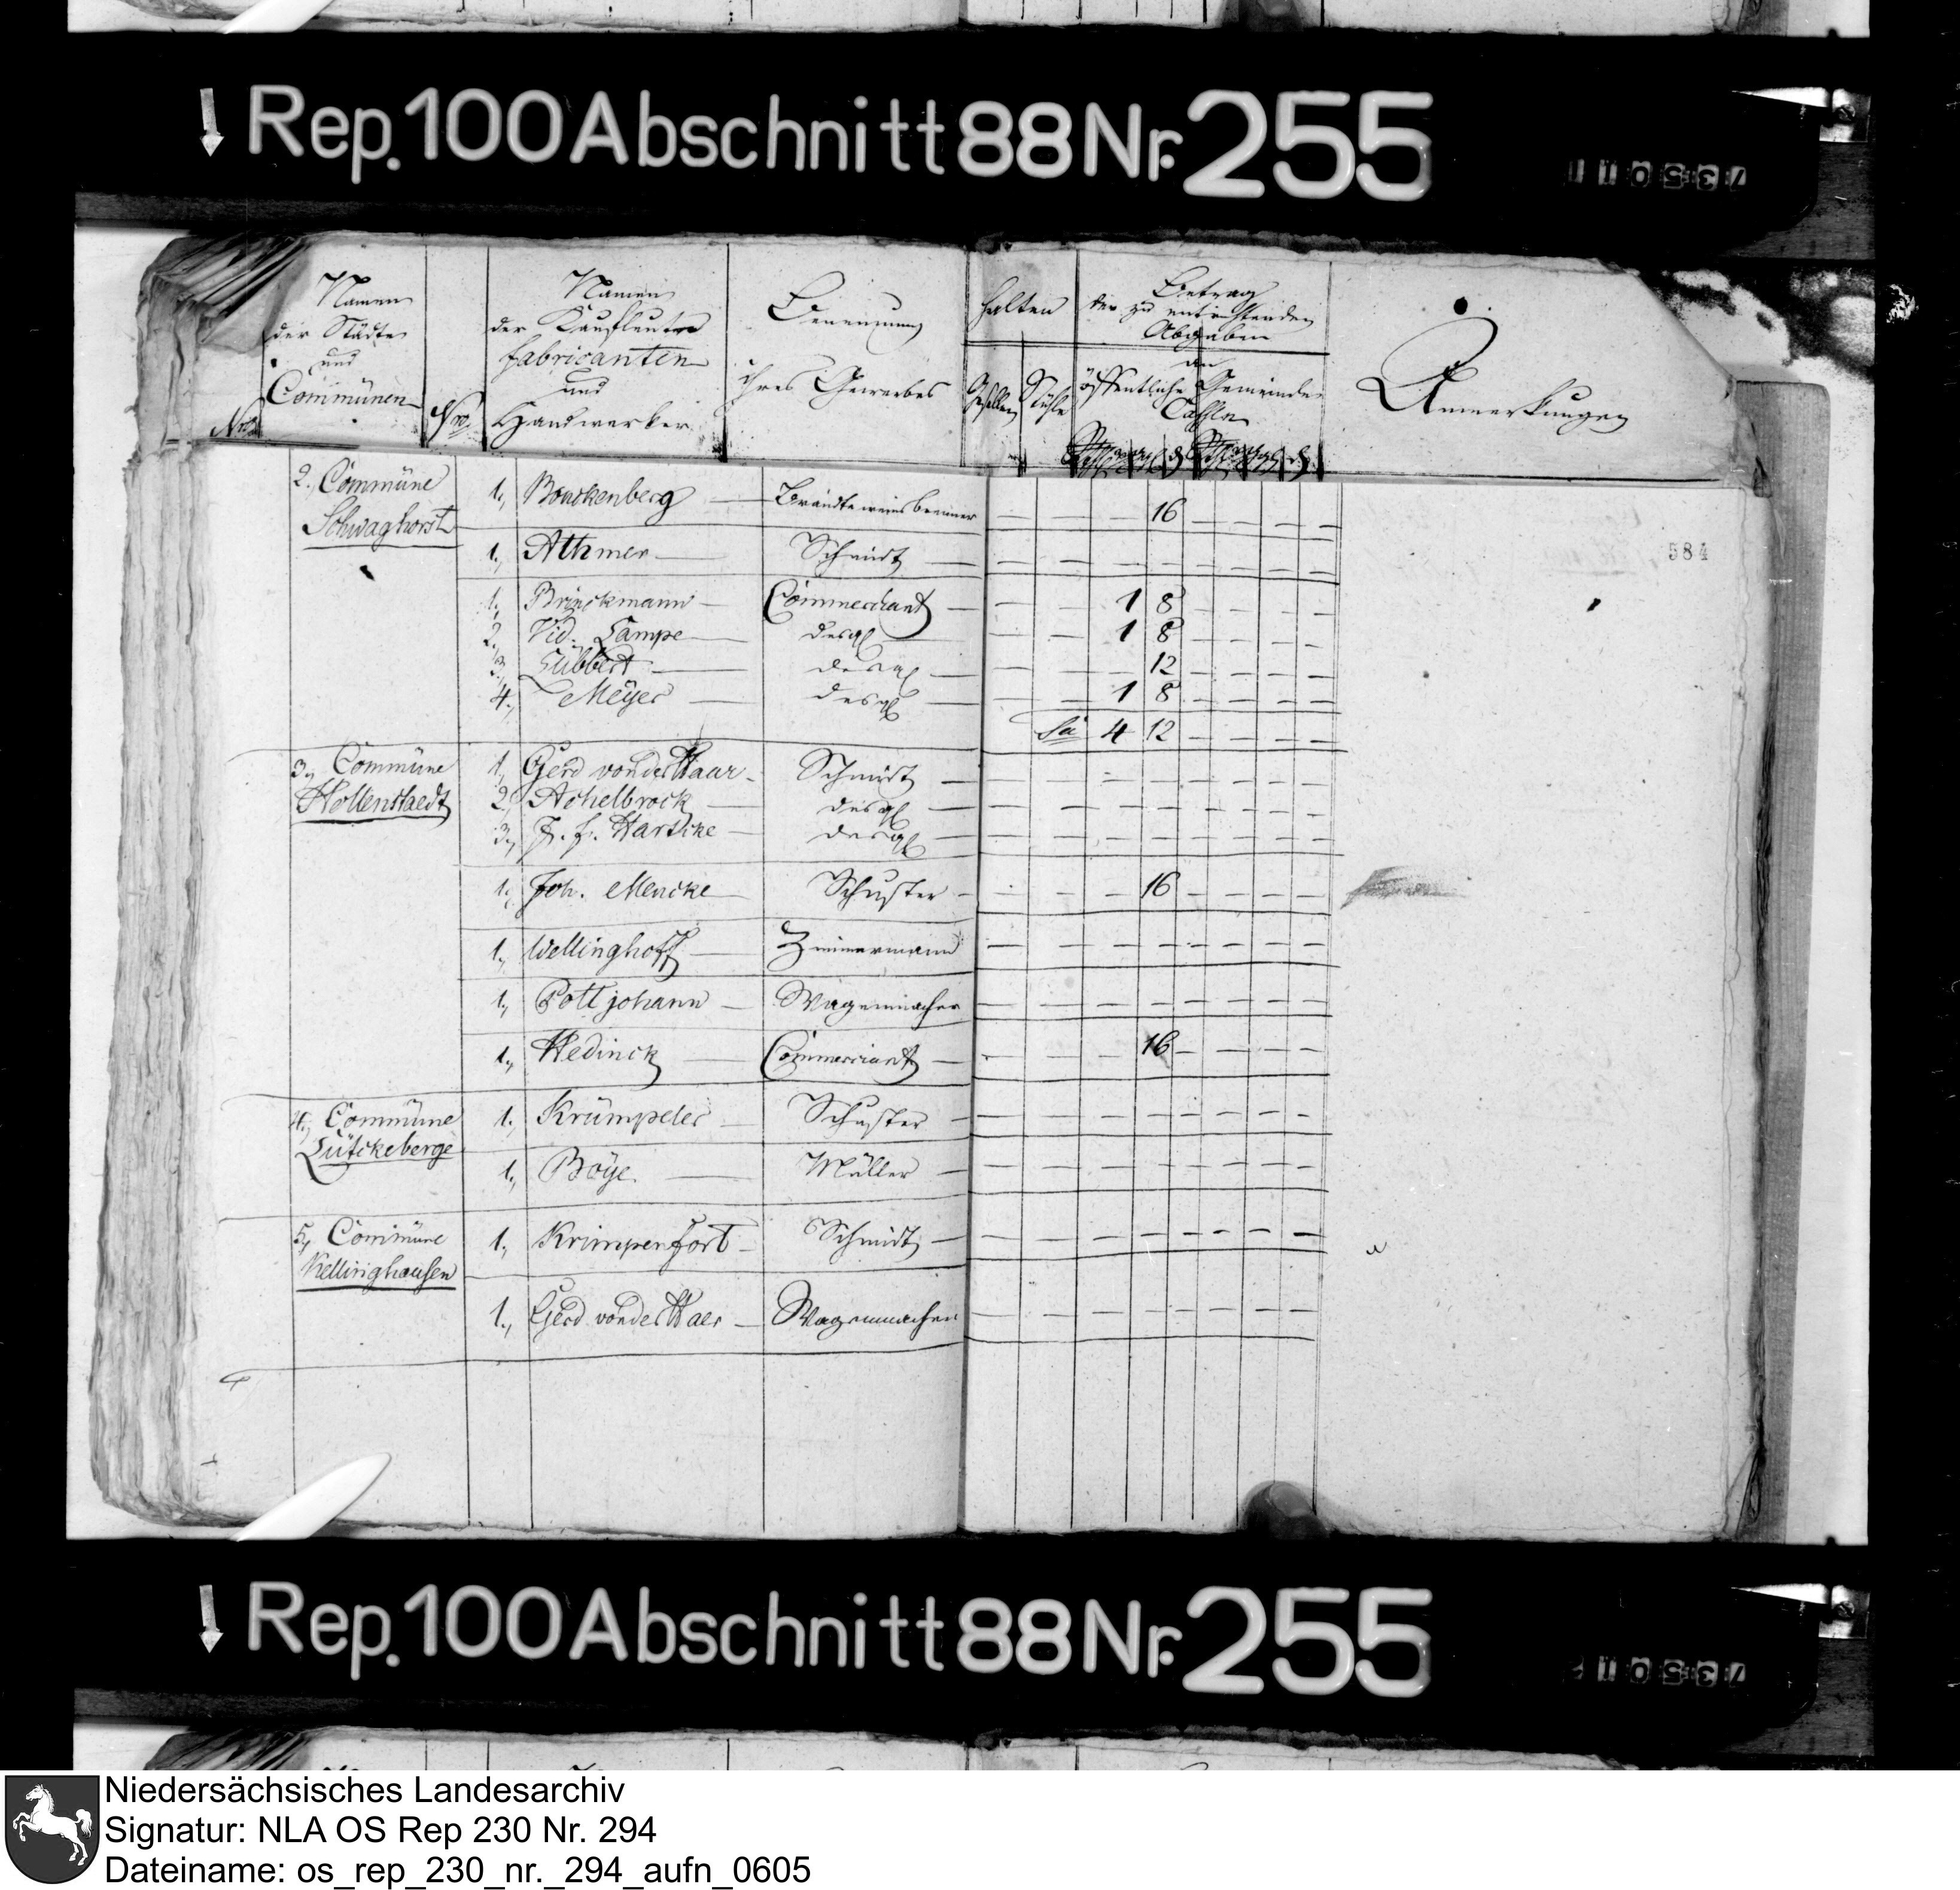 Rep. 100 Abschnitt 88 Nr. 255
Nro. Namen der Städte und Communen
Nro. Namen der Kaufleute fabricanten und Handwerker
Benennung ihres Gewerbes
halten Gesellen Stühle
Betrag der zu entrichtenden Abgaben an öffentliche Gemeinde Cassen
Anmerkungen
584
2. Commüne Schwaghorst
1., Bouckenberg — Brandteweinsbrenner — — — 16 — — — —
1., Athmer — Schmidt — — — — — — — —
1., Brinckmann — Commerciant — — — 1 8 — — — —
2., Vid. Lampe — desgl — — — 1 8 — — — —
3., Lübbert — desgl — — — — 12 — — — —
4., Meyer — desgl — — — 1 8 — — — —
Sa 4 12 — — — —
3., Commüne Hollenstaedt
1., Gerd von der Haar — Schmidt — — — — — — — —
2., Achelbrock — desgl — — — — — — — —
3., J. f. Hartcke — desgl — — — — — — — —
1., Joh. Mencke — Schuster — — — — 16 — — — —
1., Wellinghoff — Zimmermann — — — — — — — —
1., Pottjohann — Wagenmacher — — — — — — — —
1., Hedinck — Commerciant — — — — 16 — — — —
4., Commüne Lütckeberge
1., Krümpeler — Schuster — — — — — — — —
1., Böye — Müller — — — — — — — —
5., Commüne Kellinghausen
1., Krimpenfort — Schmidt — — — — — — — —
1., Gerd von der Haer — Wagenmacher — — — — — — — —
Rep. 100 Abschnitt 88 Nr. 255
Niedersächsisches Landesarchiv
Signatur: NLA OS Rep 230 Nr. 294
Dateiname: os_rep_230_nr._294_aufn_0605